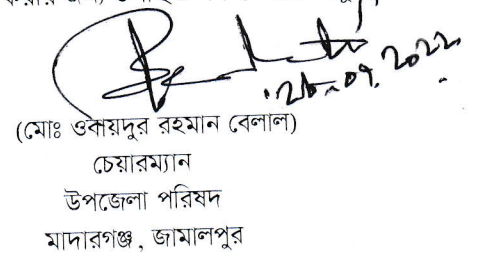 26.09.2022
(মোঃ ওবায়দুর রহমান বেলাল)
চেয়ারম্যান
উপজেলা পরিষদ
মাদারগঞ্জ, জামালপুর